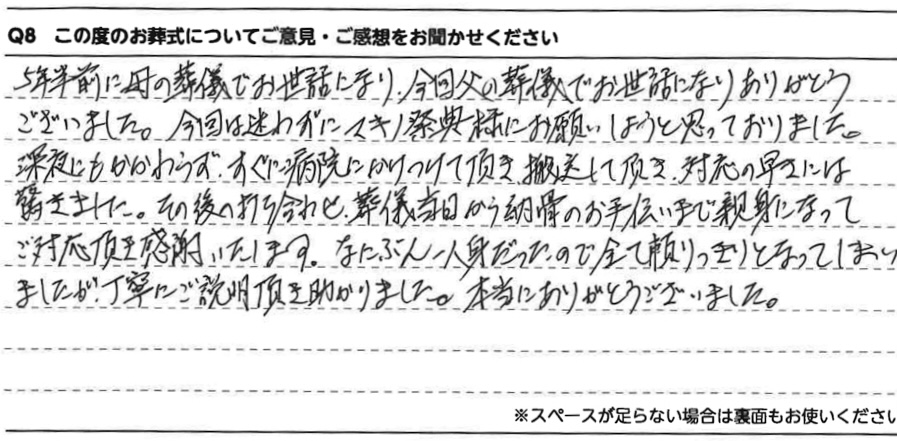 Q8 この度のお葬式についてご意見・ご感想をお聞かせください
5年半前に母の葬儀でお世話になり、今回父の葬儀でお世話になりありがとう
ございました。今回は迷わずにスキノ祭典様にお願いしようと思っておりました。
深夜にもかかわらず、すぐに病院にかけつけて頂き、搬送して頂き、対応の早さには
驚きました。その後の打ち合わせ、葬儀当日から納骨のお手伝いまで親身になって
ご対応頂き感謝いたします。なにぶん一人身だったので全て頼りっきりとなってしまい
ましたが、丁寧にご説明頂き助かりました。本当にありがとうございました。
※スペースが足らない場合は裏面もお使いください